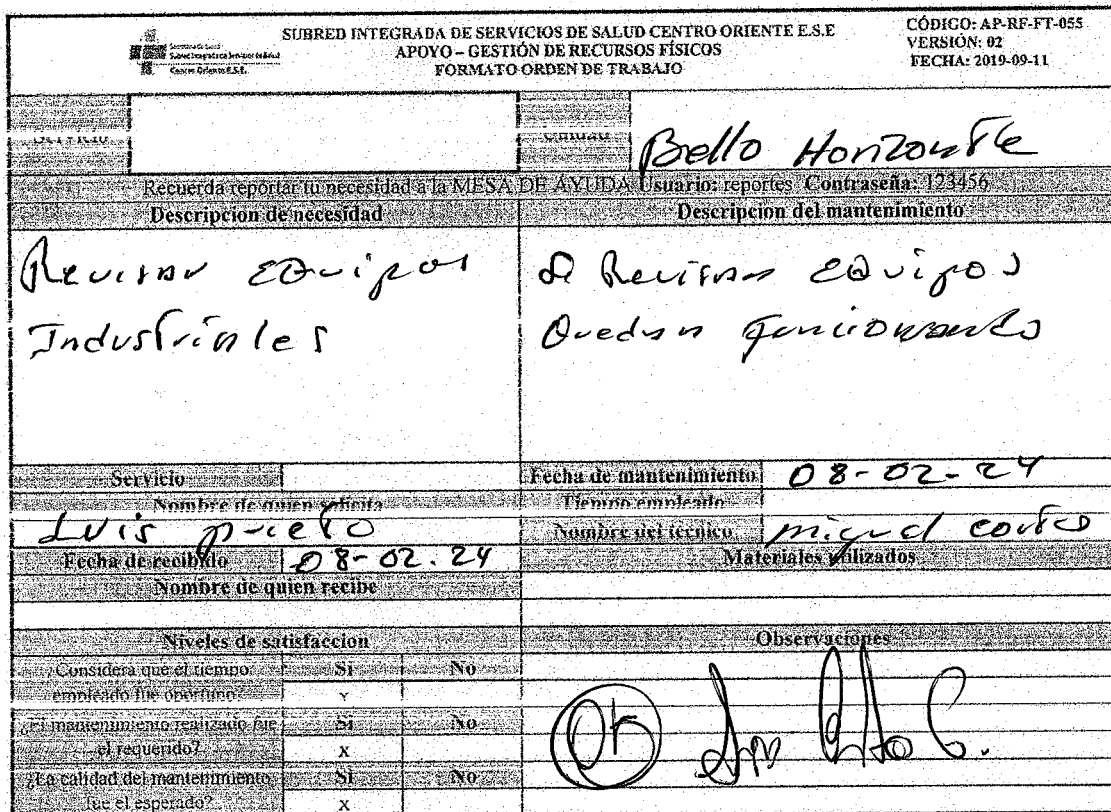 Secretaría de Salud
Subred Integrada de Servicios de Salud
Centro Oriente E.S.E.
SUBRED INTEGRADA DE SERVICIOS DE SALUD CENTRO ORIENTE E.S.E
APOYO – GESTIÓN DE RECURSOS FÍSICOS
FORMATO ORDEN DE TRABAJO
CÓDIGO: AP-RF-FT-055
VERSIÓN: 02
FECHA: 2019-09-11
Servicio
Unidad
Bello Horizonte
Recuerda reportar tu necesidad a la MESA DE AYUDA Usuario: reportes Contraseña: 123456
Descripcion de necesidad
Descripcion del mantenimiento
Revisar equipos
Industriales
Revisan equipos
Quedan funcionando
Servicio
Fecha de mantenimiento 08-02-24
Nombre de quien solicita
Tiempo empleado
Luis prieto
Nombre del tecnico miguel
Fecha de recibido 08-02.24
Materiales utilizados
Nombre de quien recibe
Niveles de satisfaccion
Observaciones
¿Considera que el tiempo
empleado fue oportuno?
Si No
x
¿El mantenimiento realizado fue
el requerido?
Si No
x
¿La calidad del mantenimiento
fue el esperado?
Si No
x
Ok